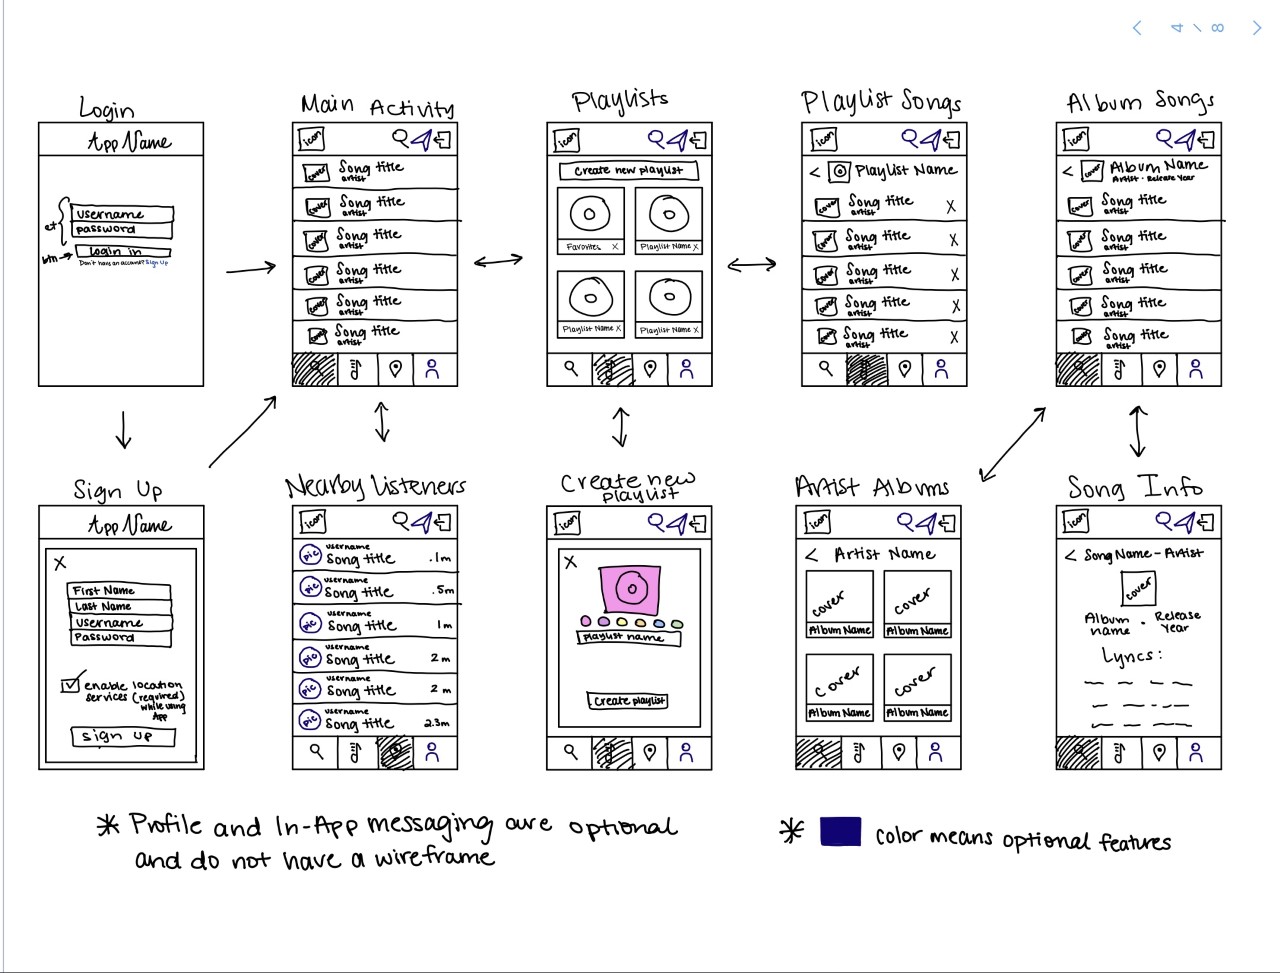 4 / 8
Login
App Name
et
username
password
btn
Login in
Don't have an account? Sign Up
Main Activity
icon
cover Song title
artist
cover Song title
artist
cover Song title
artist
cover Song title
artist
cover Song title
artist
cover Song title
artist
Playlists
icon
Create new playlist
Favorites X
Playlist Name X
Playlist Name X
Playlist Name X
Playlist Songs
icon
< Playlist Name
cover Song title X
artist
cover Song title X
artist
cover Song title X
artist
cover Song title X
artist
cover Song title X
artist
Album Songs
icon
< cover Album Name
Artist · Release Year
cover Song title
artist
cover Song title
artist
cover Song title
artist
cover Song title
artist
cover Song title
artist
Sign Up
App Name
X
First Name
Last Name
username
Password
enable location
services (required)
while using
App
sign up
Nearby Listeners
icon
username
pic Song title .1m
username
pic Song title .5m
username
pic Song title 1m
username
pic Song title 2m
username
pic Song title 2m
username
pic Song title 2.3m
Create new
playlist
icon
X
playlist name
Create playlist
Artist Albums
icon
< Artist Name
cover
Album Name
cover
Album Name
cover
Album Name
cover
Album Name
Song Info
icon
< Song Name - Artist
cover
Album
name
· Release
Year
Lyncs:
* Profile and In-App messaging are optional
and do not have a wireframe
* color means optional features